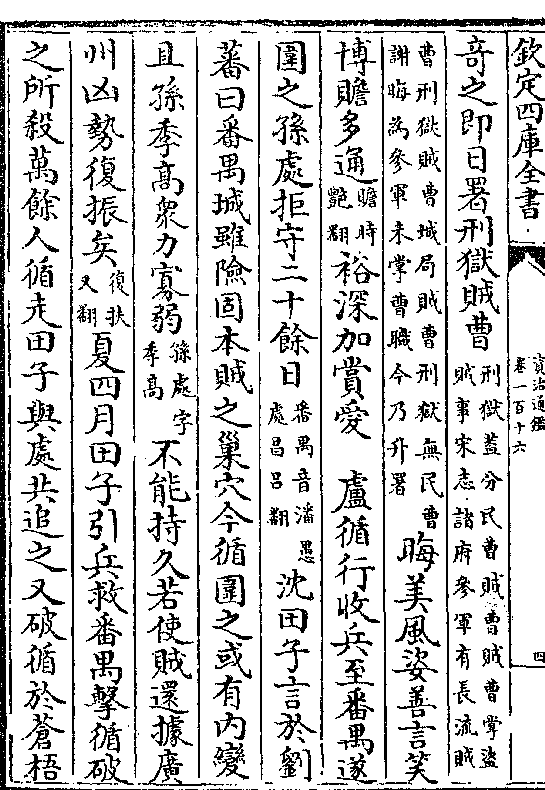 欽定四庫全書
資治通鑑
卷一百十六
四
奇之即日署刑獄賊曹刑獄蓋分民曹賊曹賊曹掌盜
賊事宋志諸府參軍有長流賊
曹刑獄賊曹城局賊曹刑獄無民曹
謝晦為參軍未掌曹職今乃升署晦美風姿善言笑
博贍多通贍時艶翻裕深加賞愛　盧循行收兵至番禺遂
圍之孫處拒守二十餘日番禺音潘愚處昌呂翻沈田子言於劉
蕃曰番禺城雖險固本賊之巢穴今循圍之或有内變
且孫季高衆力寡弱孫處字季高不能持久若使賊還據廣
州凶勢復振矣復扶又翻夏四月田子引兵救番禺擊循破
之所殺萬餘人循走田子與處共追之又破循於蒼梧